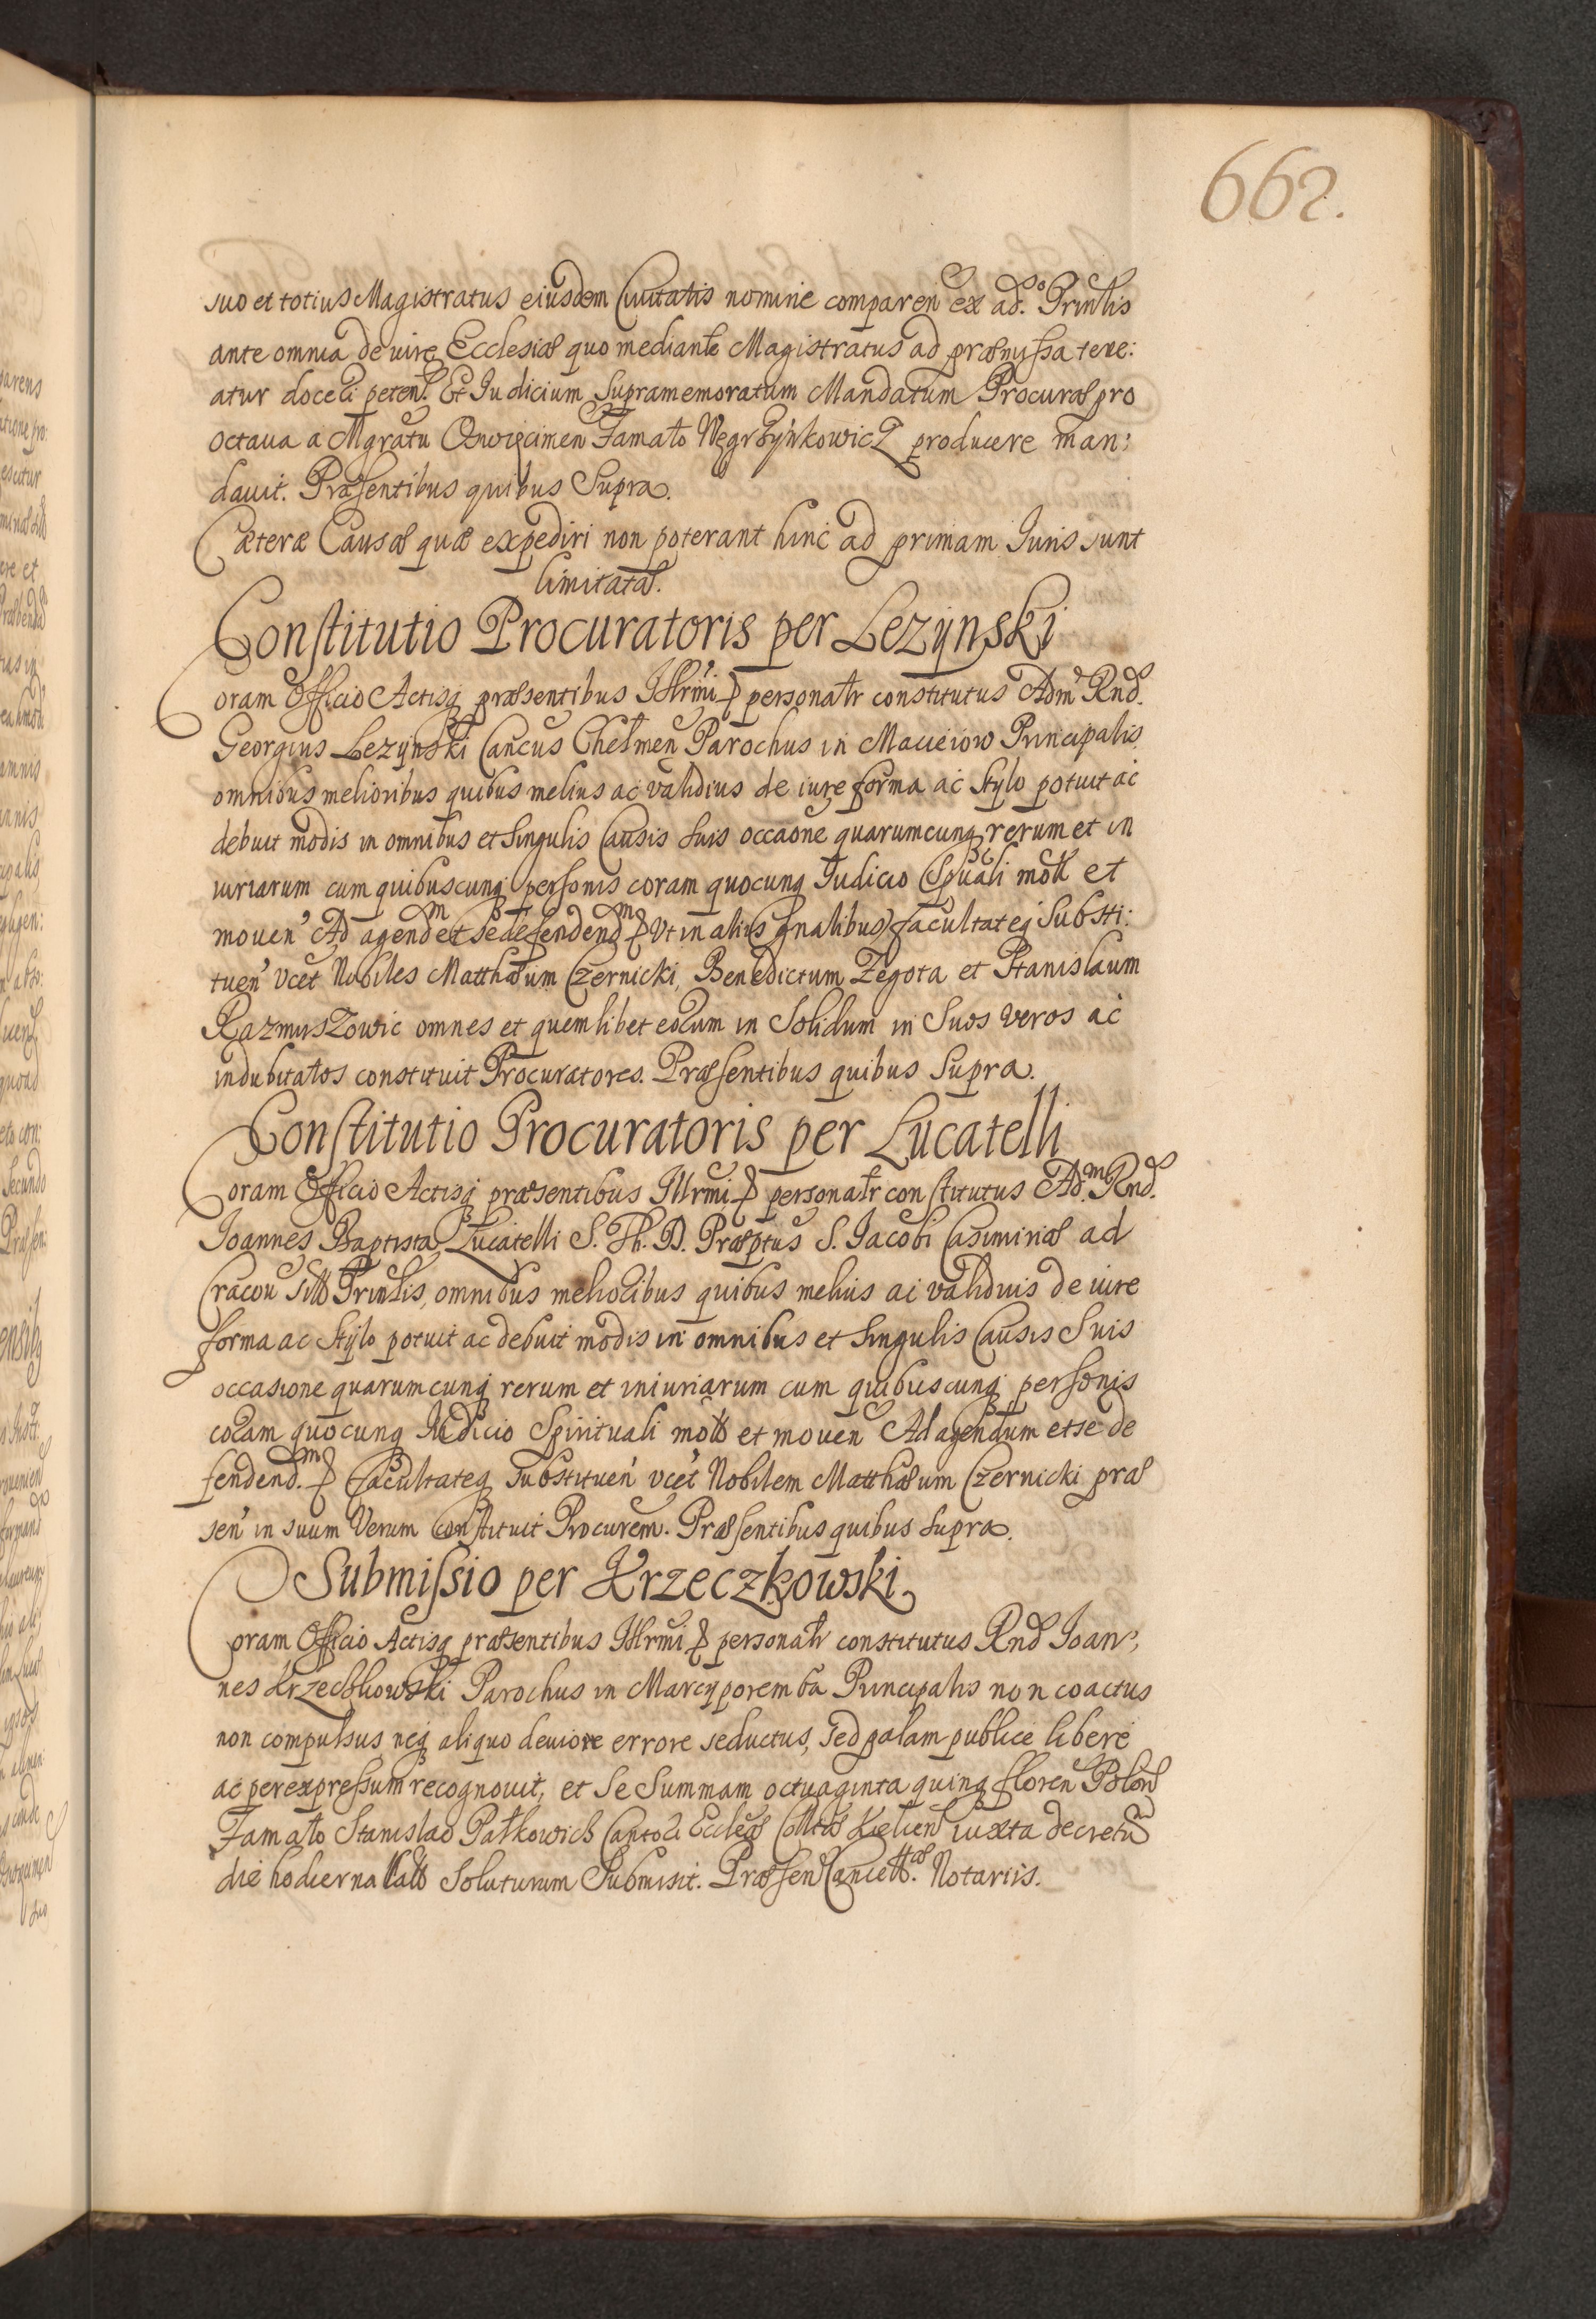 662.
suo et totius Magistratus eiusdem Civitatis nomine comparen ex ad.o Prinłis
ante omnia de iure Ecclesiæ quo mediante Magistratus ad præmyssa tene:
atur doceri peten. Et Iudicium supramemoratum Mandatum Procuræ pro
octaua a Mgratu Oswięcimen Famato Węgrzynkowicz producere man:
dauit. Præsentibus quibus Supra.
Cæteræ Causæ quæ expediri non poterant hinc ad primam Iuris sunt
limitatæ.
Constitutio Procuratoris per Lezynski
Coram Officio Actisq præsentibus Illrmi personałr constitutus Adm Rnd.
Georgius Lezynski Cancus Chelmen Parochus in Macieiow Principalis
omnibus melioribus quibus melius ac validius de iure forma ac stylo potuit ac
debuit modis in omnibus et singulis Causis suis occaone quarumcunq rerum et in
iuriarum cum quibuscunq personis coram quocunq Iudicio Spuali mott et
mouen Ad agend et se defendend Vt in aliis gnalibus facultateq substi:
tuen vcet Nobiles Matthæum Czernicki, Benedictum Zegota et Stanislaum
Razmuszowic omnes et quemlibet eorum in Solidum in Suos veros ac
indubitatos constituit Procuratores. Præsentibus quibus Supra.
Constitutio Procuratoris per Lucatelli
Coram Officio Actisq præsentibus Illrmi personałr constitutus Ad.m Rnd.
Ioannes Baptista Lucatelli S. Th. D. Præptus S. Iacobi Casimiriæ ad
Cracou sitt Prinłis, omnibus melioribus quibus melius ac validius de iure
forma ac stylo potuit ac debuit modis in omnibus et singulis Causis Suis
occasione quarumcunq rerum et iniuriarum cum quibuscunq personis
coram quocunq Iudicio Spirituali mott et mouen Ad agendum et se de
fendend.m facultateq substituen vcet Nobilem Matthæum Czernicki præ
sen in suum Verum constituit Procurem. Præsentibus quibus supra.
Submissio per Krzeczkowski
Coram Officio Actisq præsentibus Illrmi personałr constitutus Rnd Ioan:
nes Krzeczkowski Parochus in Marcyporemba Principalis non coactus
non compulsus neq aliquo deuiore errore seductus, sed palam publice libere
ac per expressum recognouit, et se summam octuaginta quinq floren Polon
Famato Stanislao Pałkowicz Cantori Eccleæ Colltæ Kielcen iuxta decretu
die hodierna latt soluturum submisit. Præsen Cancelltæ. Notariis.